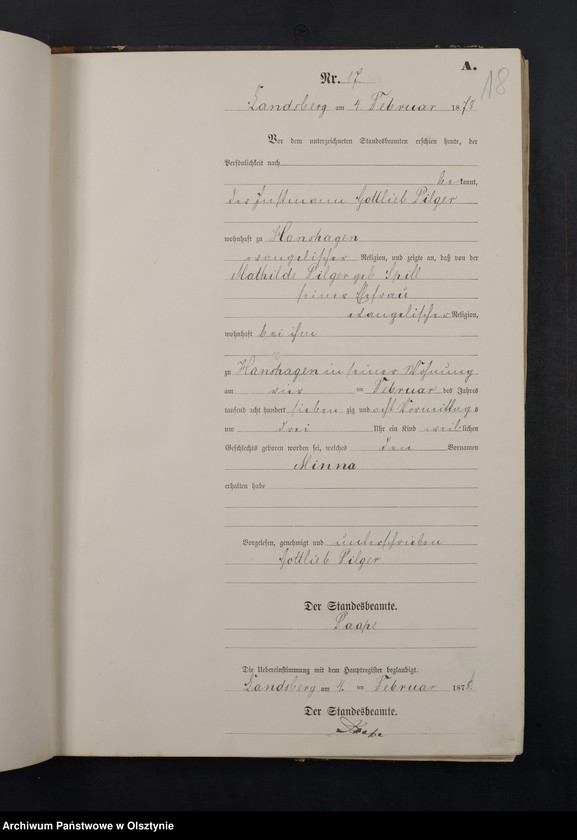 A.
18
Nr. 17.
Landsberg am 4 Februar 1878
Vor dem unterzeichneten Standesbeamten erschien heute, der
Persönlichkeit nach
be kannt,
der Instmann Gottlieb Pilger
wohnhaft zu Hanshagen
evangelischer Religion, und zeigte an, daß von der
Mathilde Pilger geb. Spill
seiner Ehefrau
evangelischer Religion,
wohnhaft bei ihm
zu Hanshagen in seiner Wohnung
am vier ten Februar des Jahres
tausend acht hundert sieben zig und acht Vormittags
um drei Uhr ein Kind weiblichen
Geschlechts geboren worden sei, welches den Vornamen
Minna
erhalten habe
Vorgelesen, genehmigt und unterschrieben
Gottlieb Pilger
Der Standesbeamte.
Paape
Die Uebereinstimmung mit dem Hauptregister beglaubigt.
Landsberg am 4. ten Februar 1878
Der Standesbeamte.
Paape
Archiwum Państwowe w Olsztynie